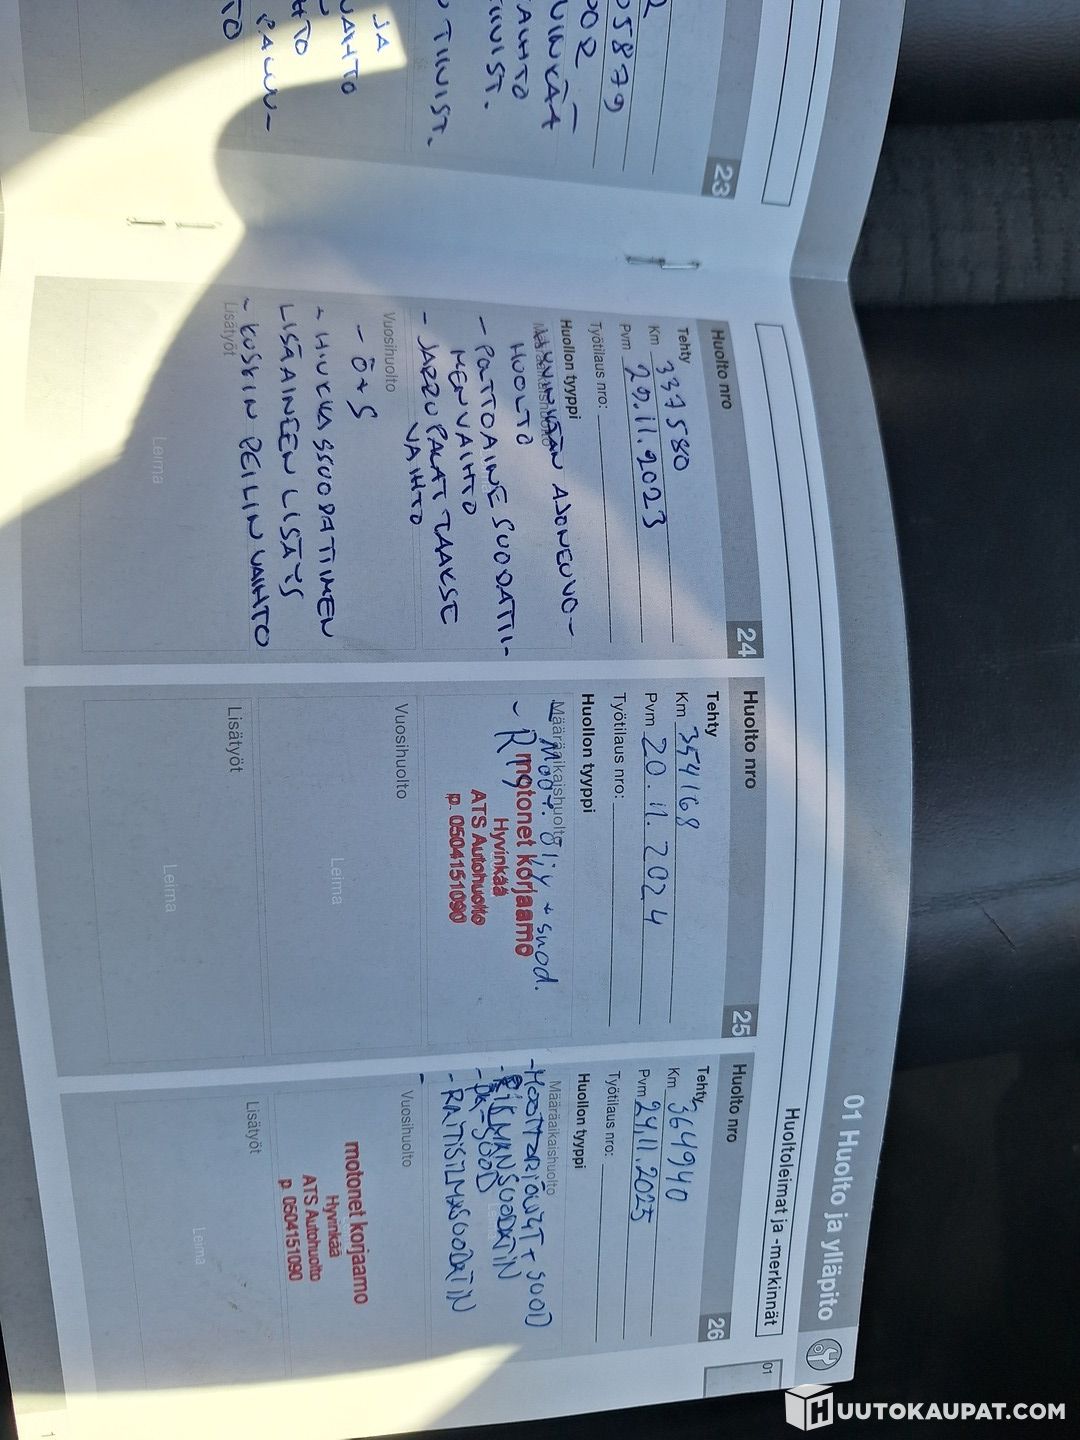 01 Huolto ja ylläpito
Huoltoleimat ja -merkinnät
01
23
05879
TINIST.
JA
Huolto nro 24
Tehty
Km 337580
Pvm 29.11.2023
Työtilaus nro:
Huollon tyyppi
Määräaikaishuolto
HYVINKÄÄN AJONEUVO-
HUOLTO
- POLTTOAINESUODATTI-
MEN VAIHTO
- JARRUPALAT TAAKSE
VAIHTO
Vuosihuolto
- Ö+S
- HIUKKASSUODATTIMEN
LISÄAINEEN LISÄYS
Lisätyöt
- KUSKIN PEILIN VAIHTO
Leima
Huolto nro 25
Tehty
Km 354168
Pvm 20.11.2024
Työtilaus nro:
Huollon tyyppi
Määräaikaishuolto
- Moot. öljy + suod.
motonet korjaamo
Hyvinkää
ATS Autohuolto
p. 0504151090
Vuosihuolto
Leima
Lisätyöt
Leima
Huolto nro 26
Tehty
Km 364940
Pvm 24.11.2025
Työtilaus nro:
Huollon tyyppi
Määräaikaishuolto
- MOOTTORIÖLJYT + SUOD
- ILMANSUODATIN
- PA-SUOD
- RAITISILMASUODATIN
Vuosihuolto
motonet korjaamo
Hyvinkää
ATS Autohuolto
p. 0504151090
Lisätyöt
Leima
1
HUUTOKAUPAT.COM